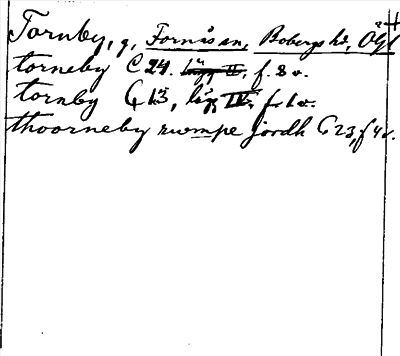 Tornby, g, Fornåsa sn, Bobergs hd, Ögl
torneby C 24. lägg II, f. 8 v.
tornby C 13, lägg IV, f. 1 v.
thoorneby rwmpe jordh C 23, f 4 v.